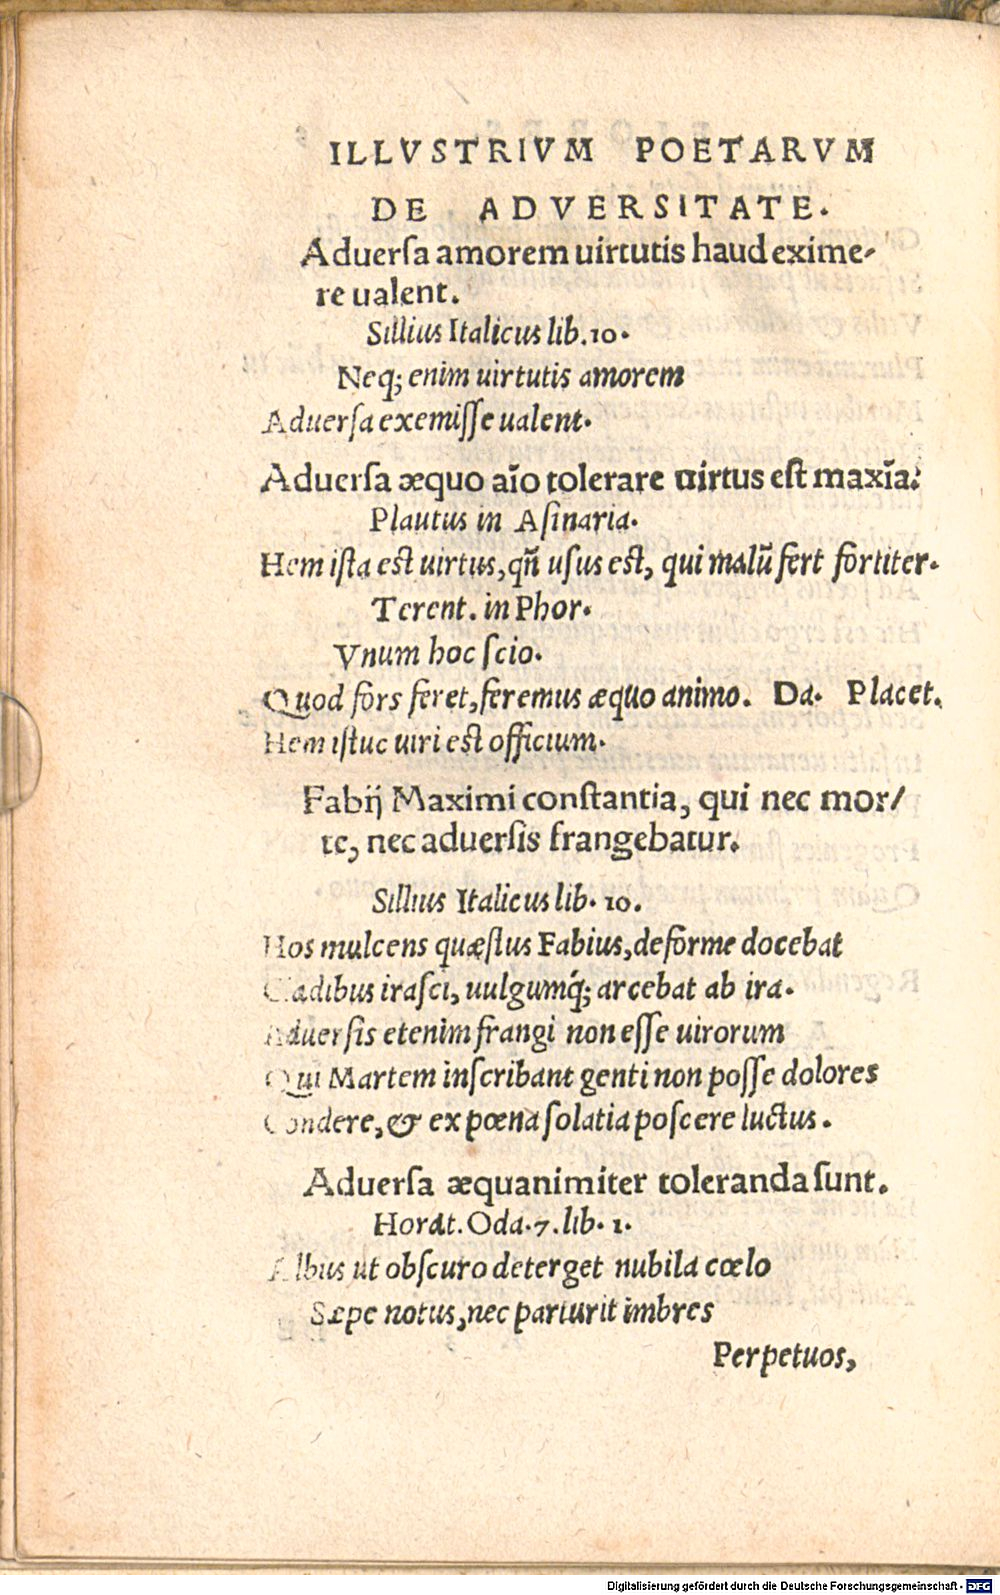 ILLVSTRIVM POETARVM
DE ADVERSITATE.
Aduerſa amorem uirtutis haud exime-
re ualent.
Sillius Italicus lib. 10.
Neq; enim uirtutis amorem
Aduerſa exemiſſe ualent.
Aduerſa æquo aĩo tolerare uirtus eſt maxĩa.
Plautus in Aſinaria.
Hem iſta eſt uirtus, qñ uſus eſt, qui malũ fert fortiter.
Terent. in Phor.
Vnum hoc ſcio.
Quod fors feret, feremus æquo animo. Da. Placet.
Hem iſtuc uiri eſt officium.
Fabij Maximi conſtantia, qui nec mor/
te, nec aduerſis frangebatur.
Sillius Italicus lib. 10.
Hos mulcens quæſtus Fabius, deforme docebat
Cladibus iraſci, uulgumq́; arcebat ab ira.
Aduerſis etenim frangi non eſſe uirorum
Qui Martem inſcribant genti non poſſe dolores
Condere, & ex pœna ſolatia poſcere luctus.
Aduerſa æquanimiter toleranda ſunt.
Horat. Oda. 7. lib. 1.
Albus ut obſcuro deterget nubila cœlo
Sæpe notus, nec parturit imbres
Perpetuos,
Digitalisierung gefördert durch die Deutsche Forschungsgemeinschaft - DFG